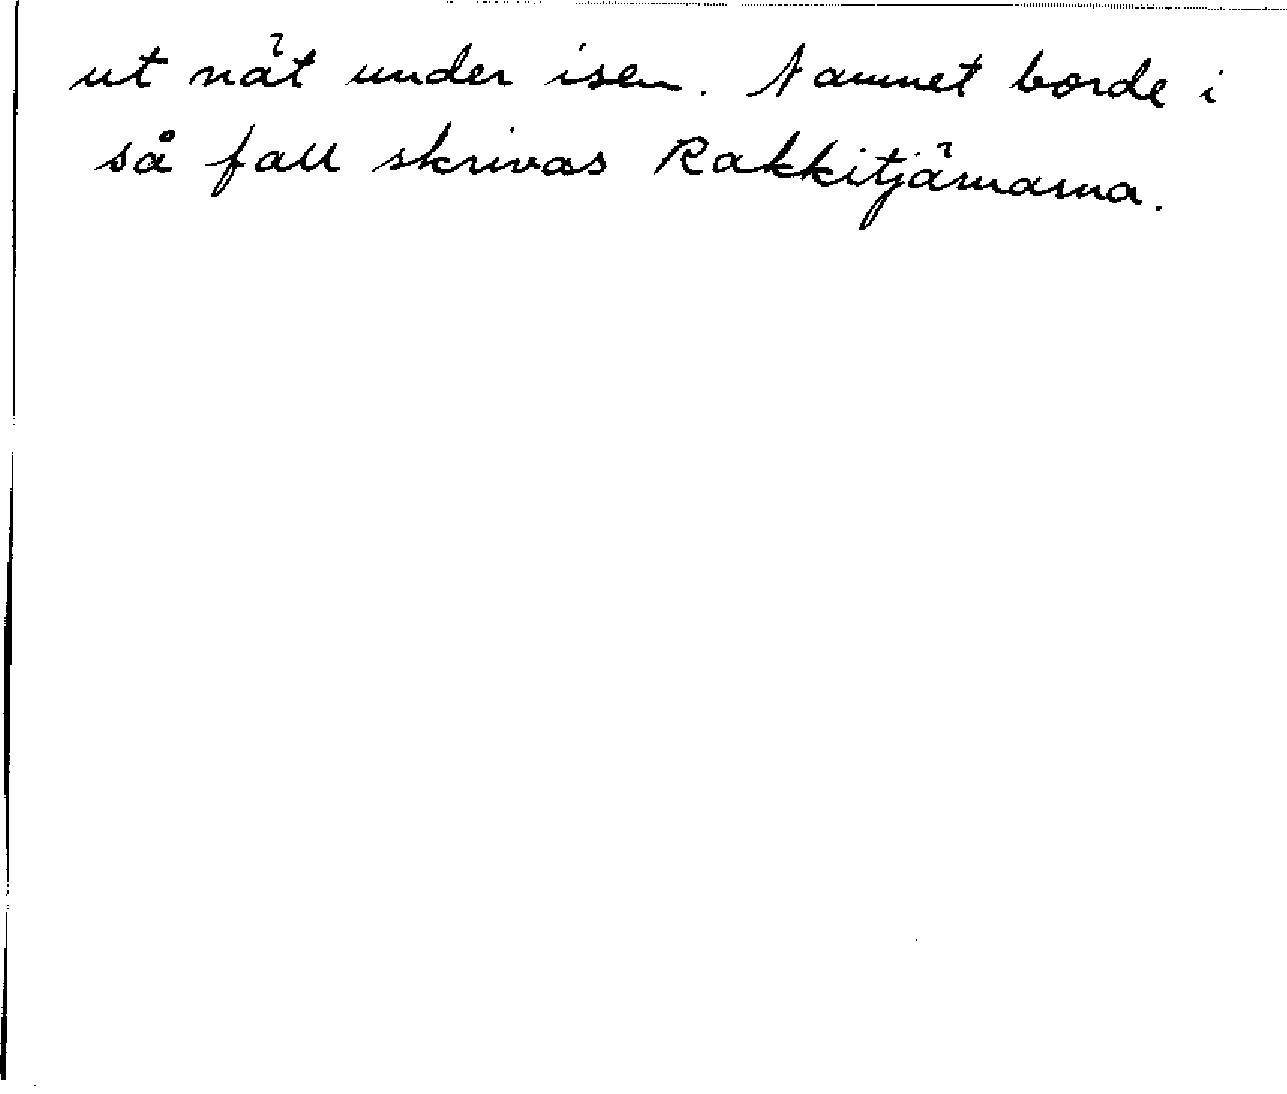 ut nät under isen. Namnet borde i
så fall skrivas Rakkitjärnarna.